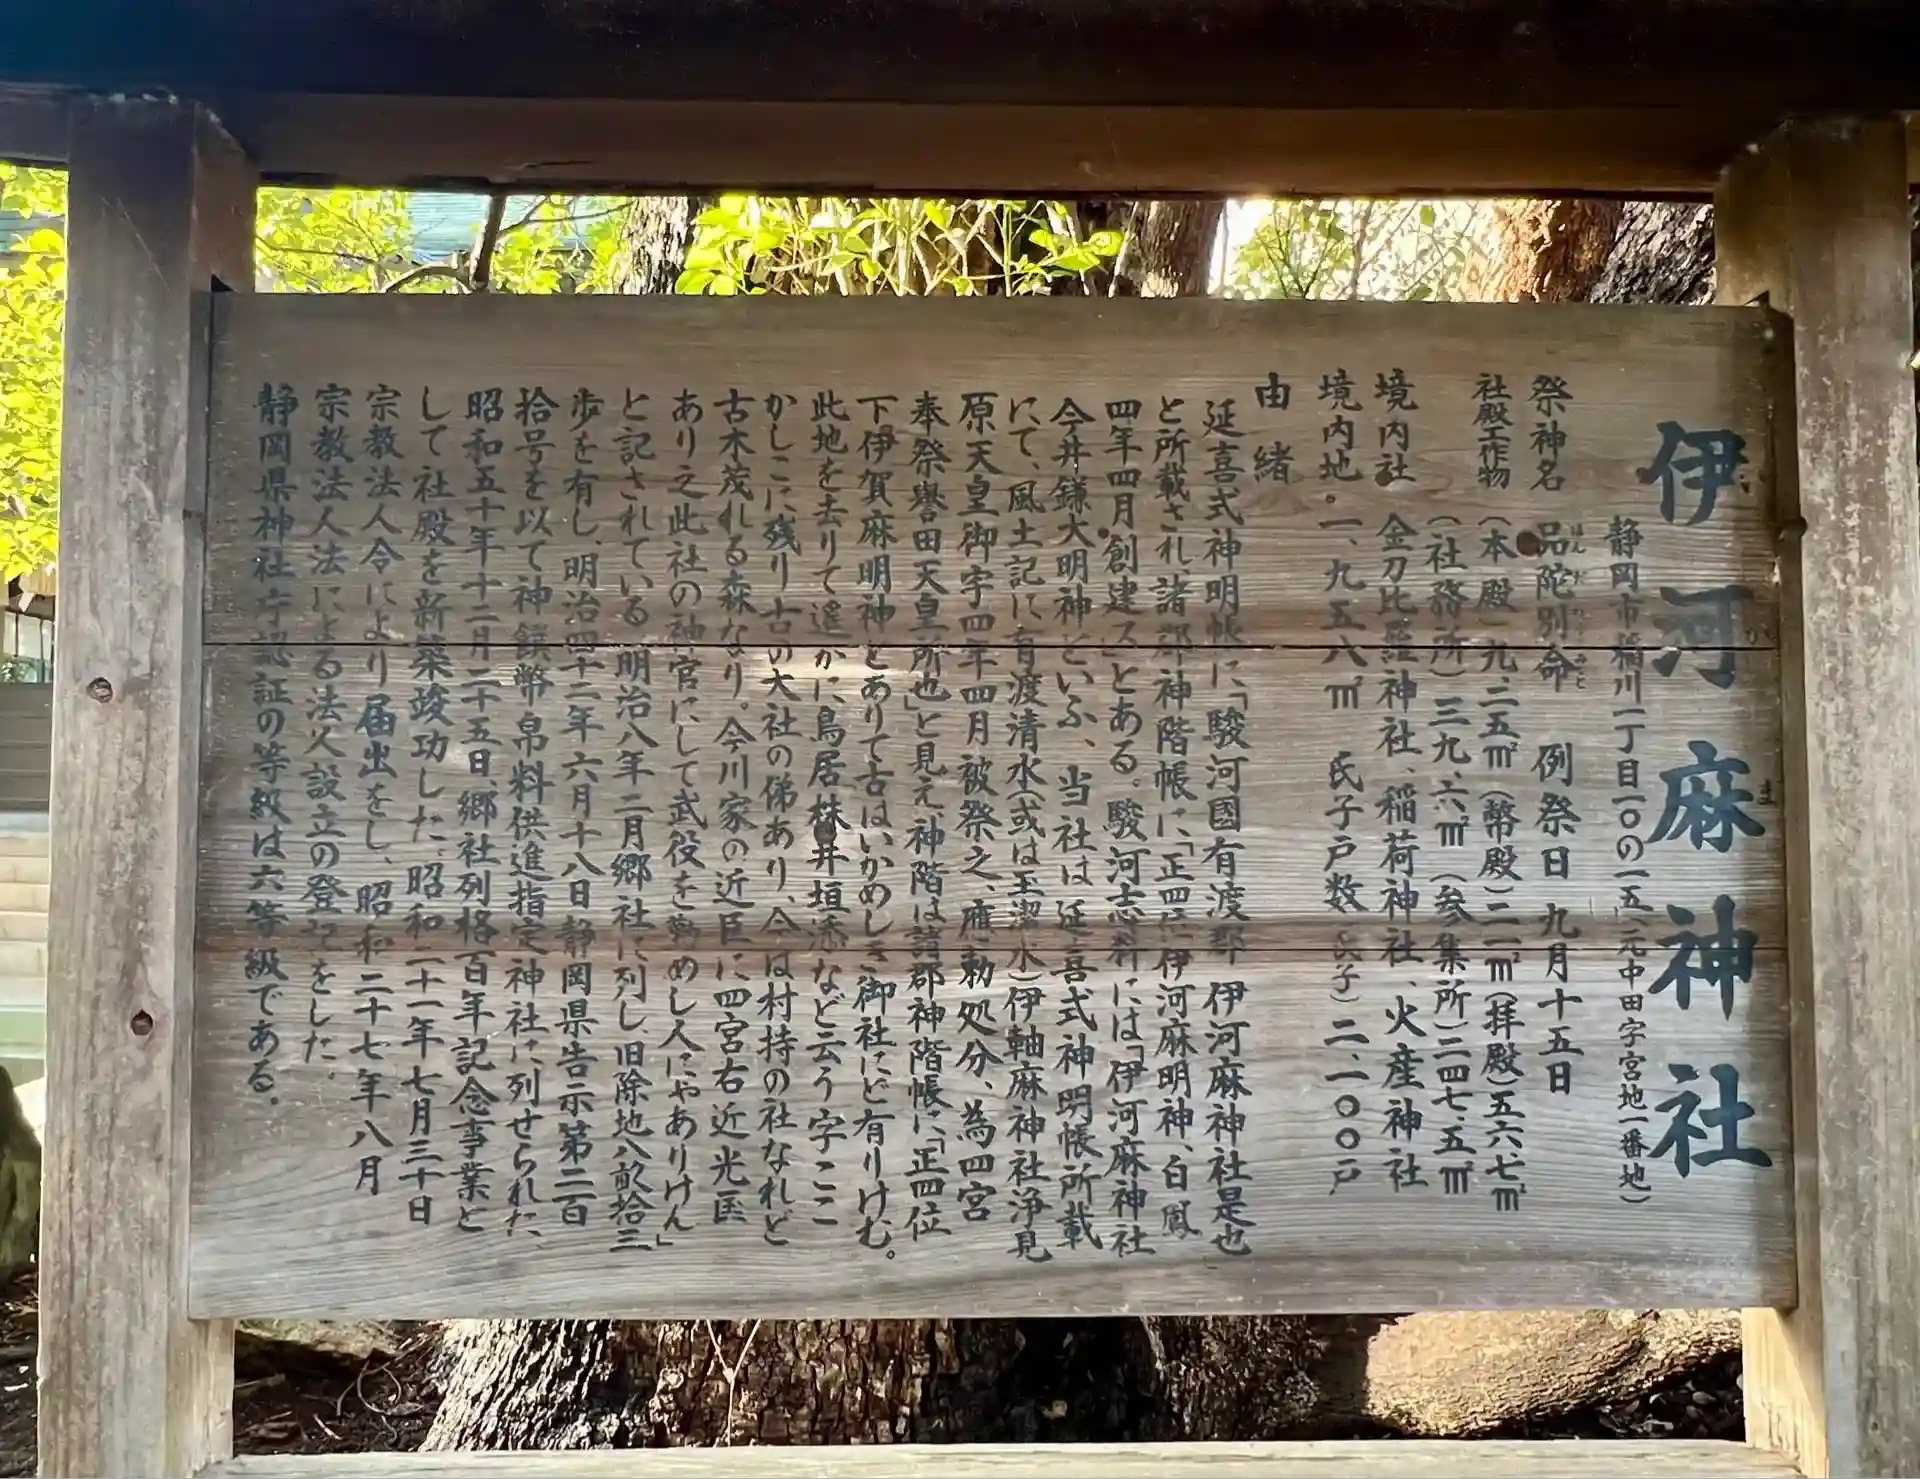 伊河麻神社
静岡市稲川一丁目一〇の一五(元中田字宮地一番地)
祭神名 品陀別命 例祭日 九月十五日
社殿工作物 (本殿)九、二五㎡(幣殿)二一㎡(拝殿)五六、七㎡
(社務所)三九、六㎡(参集所)二四七、五㎡
境内社 金刀比羅神社、稲荷神社、火産神社
境内地 一、九五八㎡ 氏子戸数 二、一〇〇戸
由緒
延喜式神明帳に「駿河國有渡郡 伊河麻神社是也
と所載され、諸郡神階帳に「正四位伊河麻明神、白鳳
四年四月創建ス」とある。駿河志料には「伊河麻神社
今井鎌大明神といふ、当社は延喜式神明帳所載
にて、風土記に有渡清水(或は玉潔水)伊軸麻神社浄見
原天皇御宇四年四月被祭之、應勅処分、為四宮
奉祭譽田天皇所也」と見え、神階は諸郡神階帳に「正四位
下伊賀麻明神とありて古はいかめしき御社にど有りけむ。
此地を去りて遙かに鳥居株井垣添など云う字ここ
かしこに残り古の大社の俤あり、今は村持の社なれど
古木茂れる森なり。今川家の近臣に四宮右近光匡
あり之此社の神官にして武役を勤めし人にやありけん」
と記されている。明治八年二月郷社に列し、旧除地八畝拾三
歩を有し、明治四十二年六月十八日静岡県告示第二百
拾号を以て神饌幣帛料供進指定神社に列せられた、
昭和五十年十二月二十五日、郷社列格百年記念事業と
して社殿を新築竣功した、昭和二十一年七月三十日
宗教法人令により届出をし、昭和二十七年八月
宗教法人法による法人設立の登記をした。
静岡県神社庁認証の等級は六等級である。